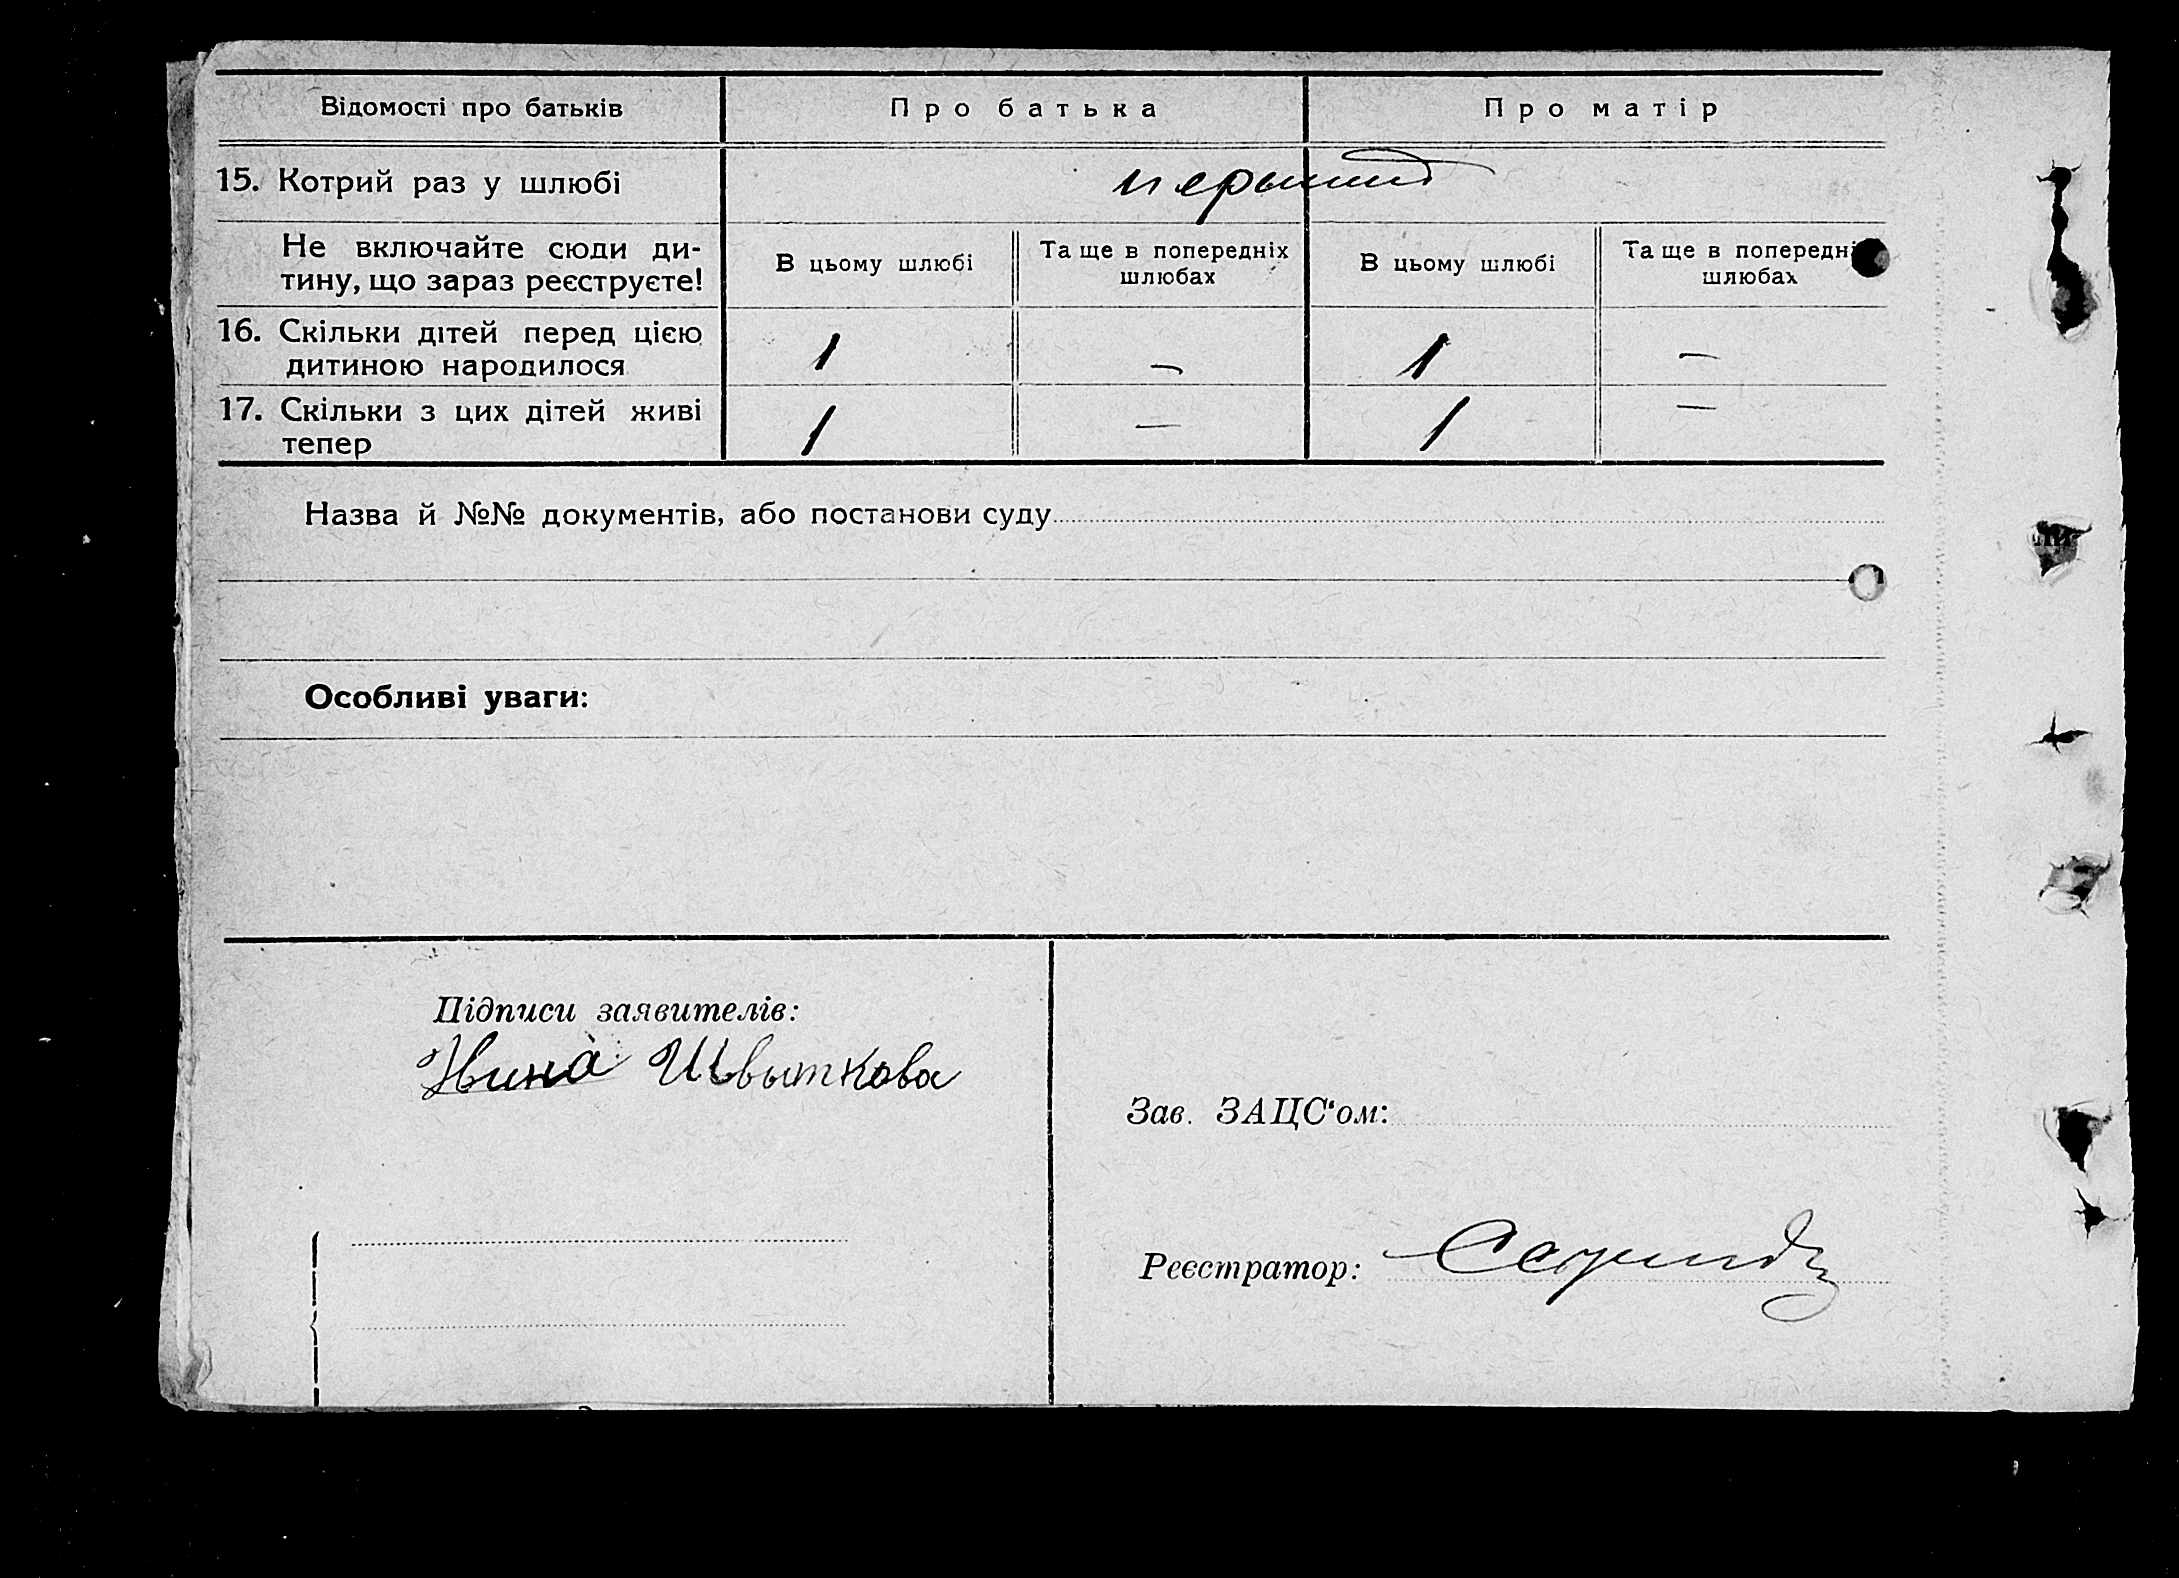 Відомості про батьків Про батька Про матір
15. Котрий раз у шлюбі перший
Не включайте сюди ди-
тину, що зараз реєструєте!
В цьому шлюбі
Та ще в попередніх
шлюбах
В цьому шлюбі
Та ще в попередні
шлюбах
16. Скільки дітей перед цією
дитиною народилося
1 – 1 –
17. Скільки з цих дітей живі
тепер
1 – 1 –
Назва й №№ документів, або постанови суду
Особливі уваги:
Підписи заявителів:
Нина Швыткова
Зав. ЗАЦС'ом:
Реєстратор: